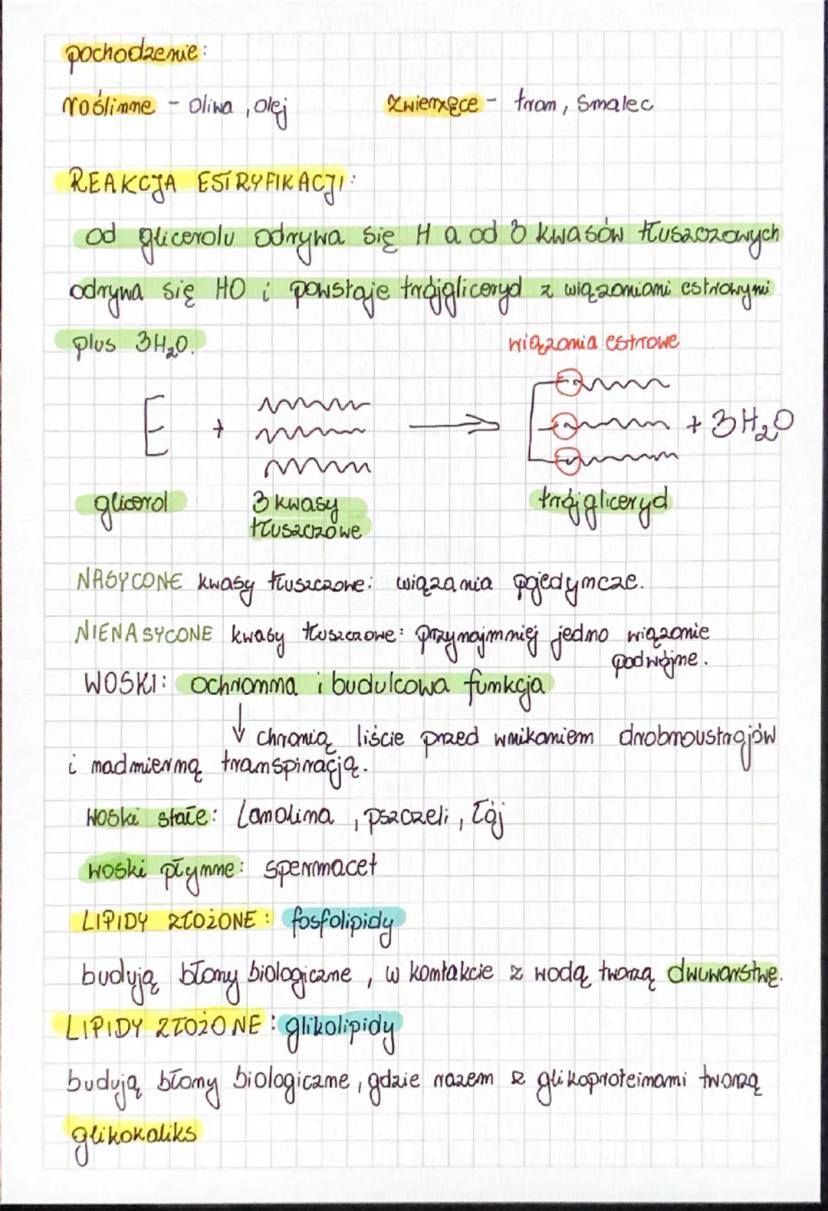 pochodzenie:
roślinne - oliwa, olej zwierzęce - tran, smalec
REAKCJA ESTRYFIKACJI:
od glicerolu odrywa się H a od 3 kwasów tłuszczowych
odrywa się HO i powstaje trójgliceryd z wiązaniami estrowymi
plus 3H₂O.
wiązania estrowe
+ + 3H₂O
glicerol 3 kwasy tłuszczowe trójgliceryd
NASYCONE kwasy tłuszczowe: wiązania pojedyncze.
NIENASYCONE kwasy tłuszczowe: przynajmniej jedno wiązanie
podwójne.
WOSKI: ochronna i budulcowa funkcja
↓ chronią liście przed wnikaniem drobnoustrojów
i nadmierną transpiracją.
woski stałe: Lanolina, pszczeli, łój
woski płynne: spermacet
LIPIDY ZŁOŻONE: fosfolipidy
budują błony biologiczne, w kontakcie z wodą tworzą dwuwarstwę.
LIPIDY ZŁOŻONE: glikolipidy
budują błony biologiczne, gdzie razem z glikoproteinami tworzą
glikokaliks